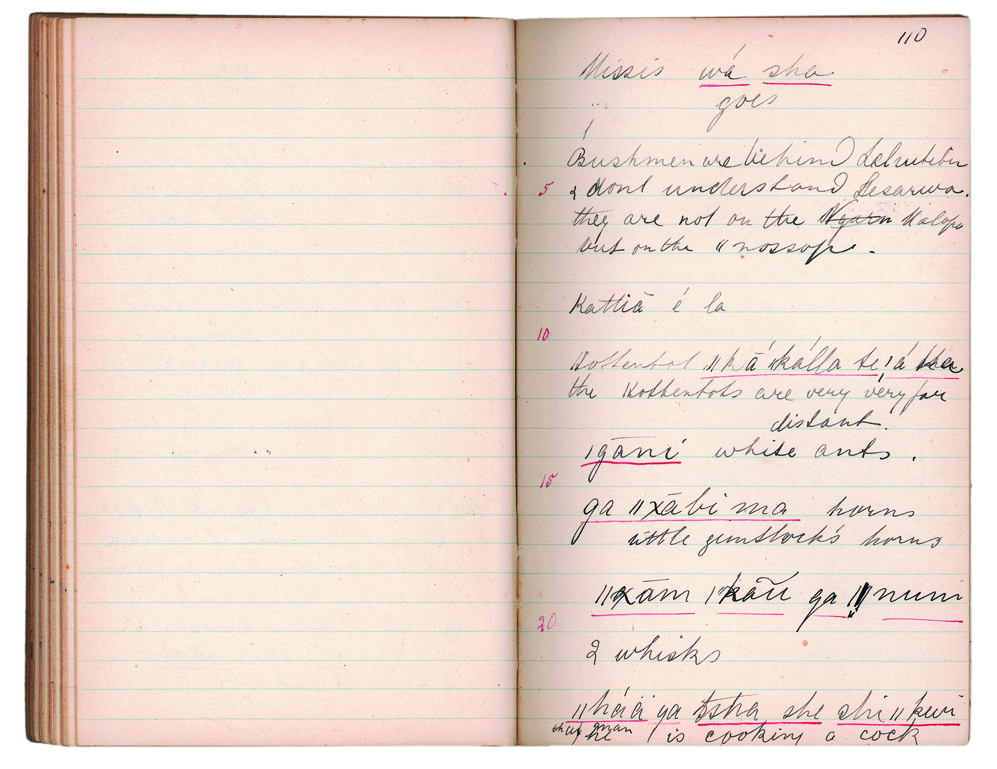 110
Missis wá sha
" goes
Bushmen are behind
5 & dont understand Sesarwa.
they are not on the Malopo
but on the ǁnossop.
Kattiā é la
10
Hottentot ǁkā ǁkálla te
the Hottentots are very very far
distant.
ǀgāni white ants.
15
ga ǁxābi ma horns
little gemsbock's horns
ǁxām ga ǁnum
20
2 whisks
ǁháá ya she shi ǁkwi
that man
he is cooking a cock